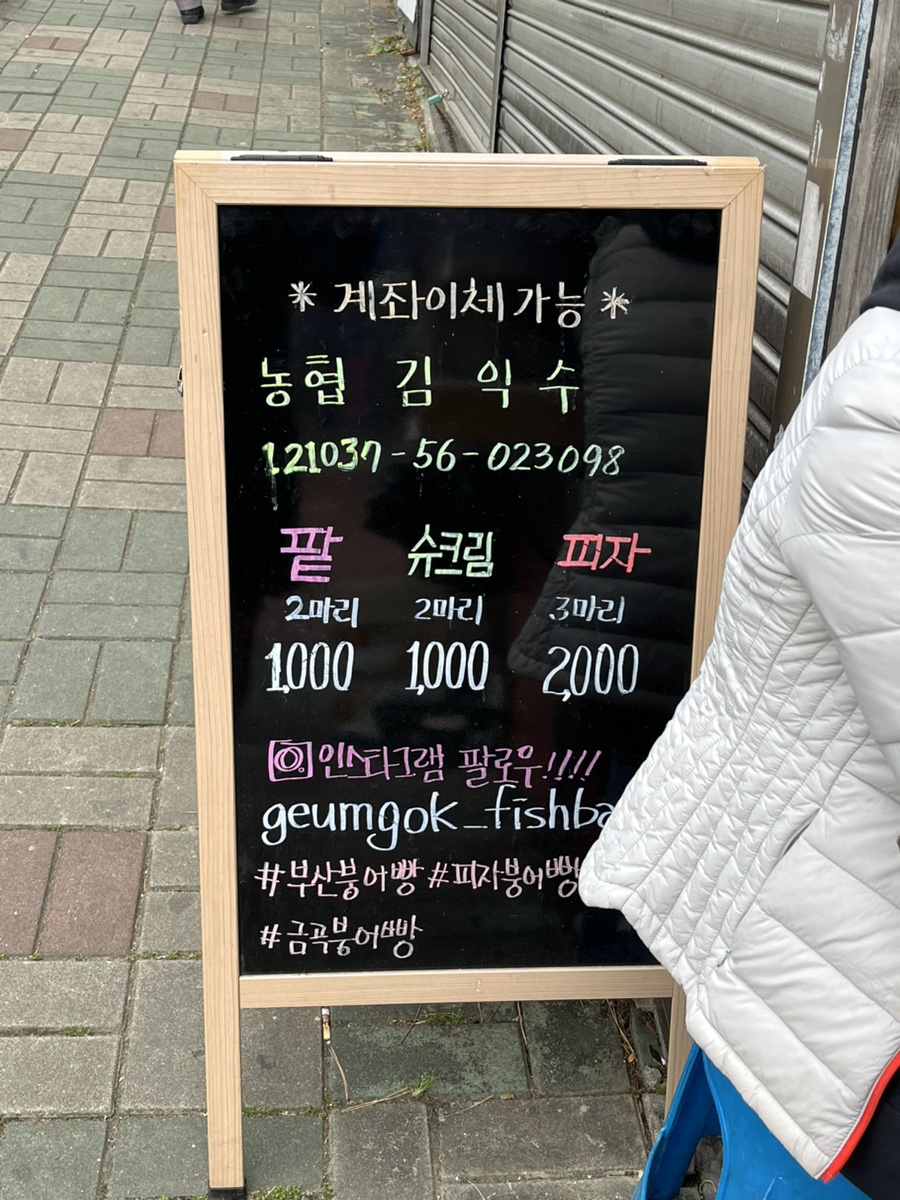 * 계좌이체 가능 *
농협 김익수
121037-56-023098
팥 슈크림 피자
2마리 2마리 3마리
1,000 1,000 2,000
인스타그램 팔로우!!!!
geumgok_fishba
#부산붕어빵 #피자붕어빵
#금곡붕어빵